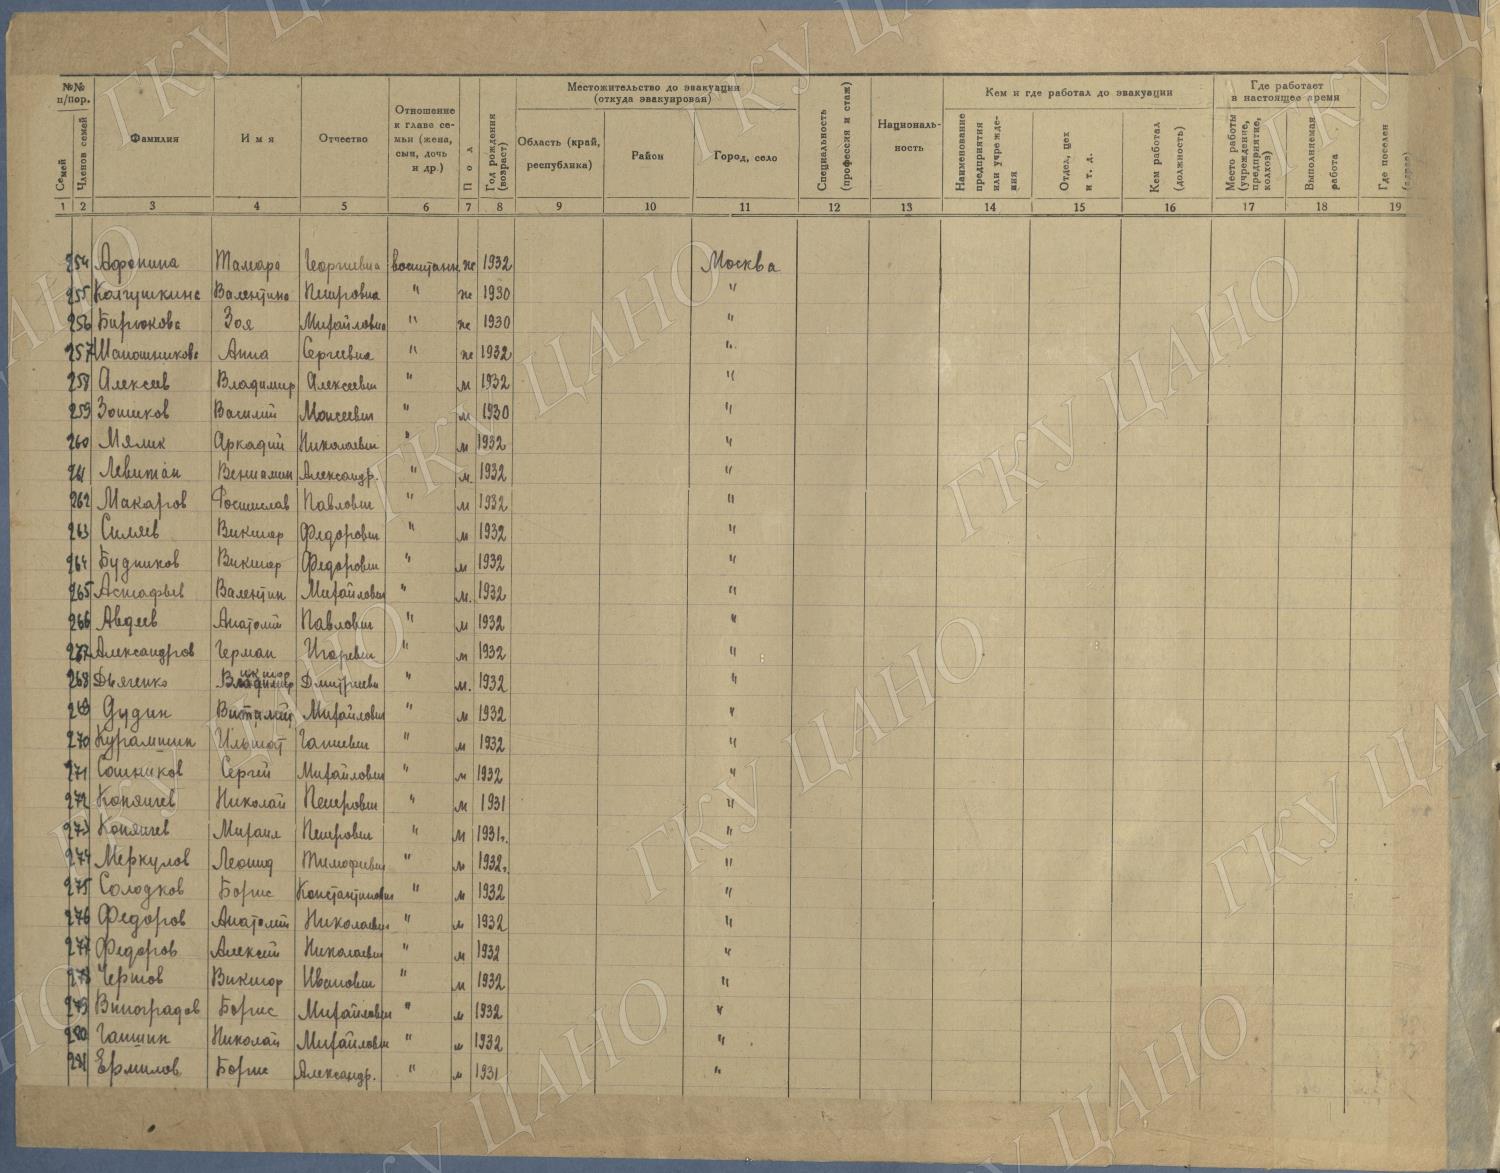 №№ п/пор.
Семей
Членов семей
Фамилия
Имя
Отчество
Отношение к главе семьи (жена, сын, дочь и др.)
Пол
Год рождения (возраст)
Местожительство до эвакуации (откуда эвакуирован)
Область (край, республика)
Район
Город, село
Специальность (профессия и стаж)
Националь-ность
Кем и где работал до эвакуации
Наименование предприятия или учрежде-ния
Отдел, цех и т. д.
Кем работал (должность)
Где работает в настоящее время
Место работы (учреждение, предприятие, колхоз)
Выполняемая работа
Где поселен
1 2 3 4 5 6 7 8 9 10 11 12 13 14 15 16 17 18 19
254 Афонина Тамара Георгиевна воспитанн. ж 1932 Москва
255 Валентина Петровна " ж 1930 "
256 Бирюкова Зоя Михайловна " ж 1930 "
257 Шапошникова Анна Сергеевна " ж 1932 "
258 Алексеев Владимир Алексеевич " м 1932 "
259 Василий Моисеевич " м 1930 "
260 Мялик Аркадий Николаевич " м 1932 "
261 Левитан Вениамин Александр. " м 1932 "
262 Макаров Ростислав Павлович " м 1932 "
263 Силяев Виктор Федорович " м 1932 "
264 Будников Виктор Федорович " м 1932 "
265 Астафьев Валентин Михайлович " м. 1932 "
266 Авдеев Анатолий Павлович " м 1932 "
267 Александров Герман Игоревич " м 1932 "
268 Дьяченко Виктор Дмитриеви " м. 1932 "
269 Дудин Виталий Михайлович " м 1932 "
270 Курамшин Ильшат Ганиевич " м 1932 "
271 Сошников Сергей Михайлович " м 1932 "
272 Николай Петрович " м 1931 "
273 Михаил Петрович " м 1931г. "
274 Меркулов Леонид Тимофеевич " м 1932г. "
275 Солодков Борис Константинович " м 1932 "
276 Федоров Анатолий Николаевич " м 1932 "
277 Федоров Алексей Николаевич " м 1932 "
278 Чертов Виктор Иванович " м 1932 "
279 Виноградов Борис Михайлович " м 1932 "
280 Ганшин Николай Михайлович " м 1932 "
281 Ермилов Борис Александр. " м 1931 "
ГКУ ЦАНО